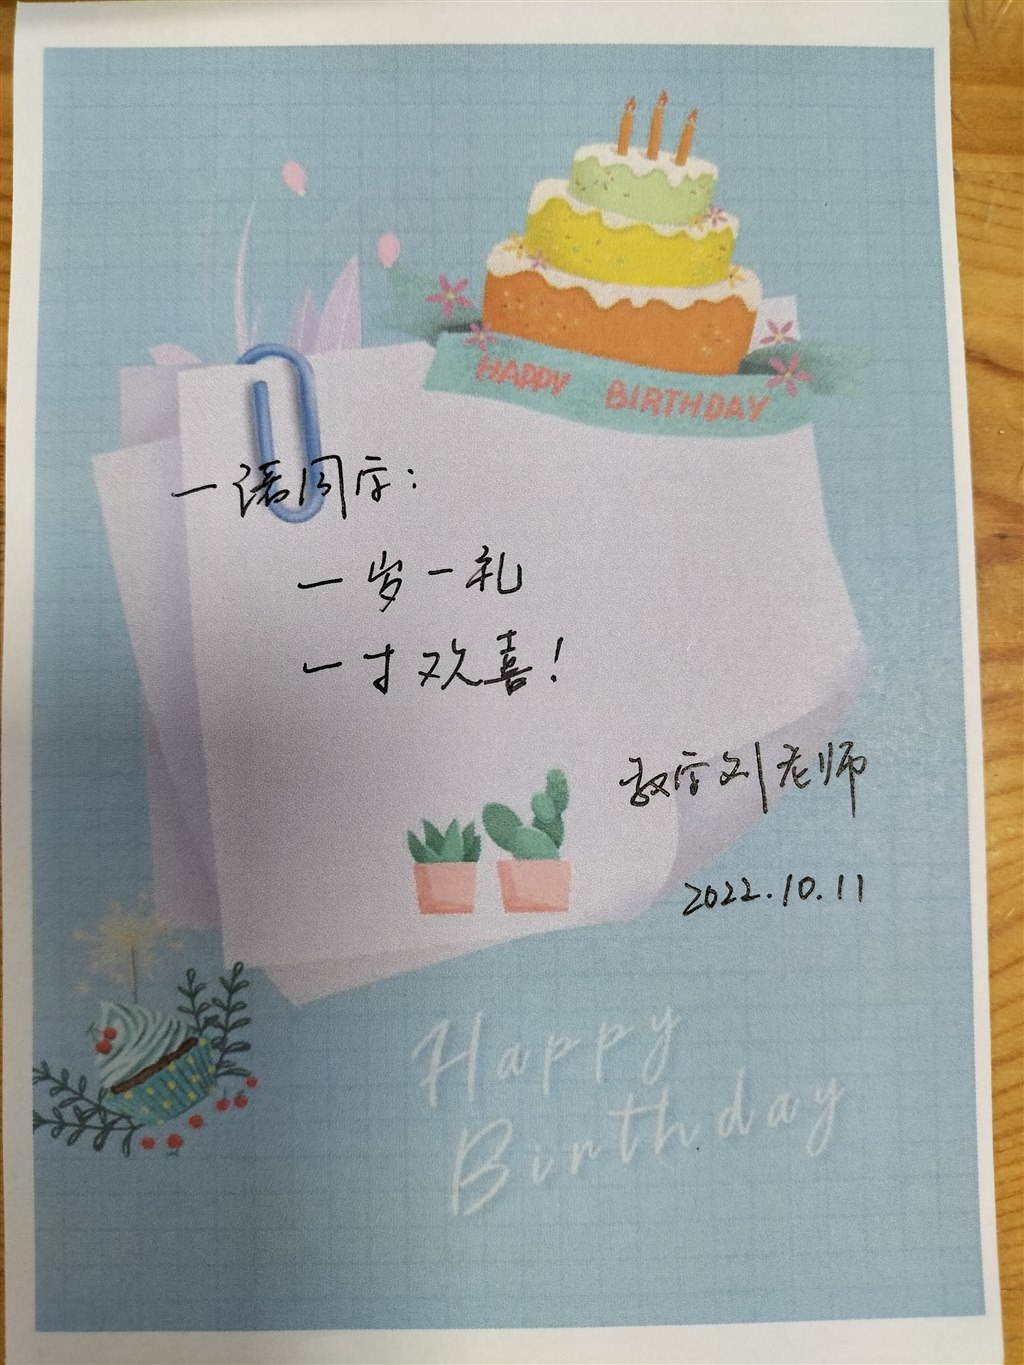 HAPPY BIRTHDAY
一诺同学：
一岁一礼
一寸欢喜！
数学刘老师
2022.10.11
Happy
Birthday